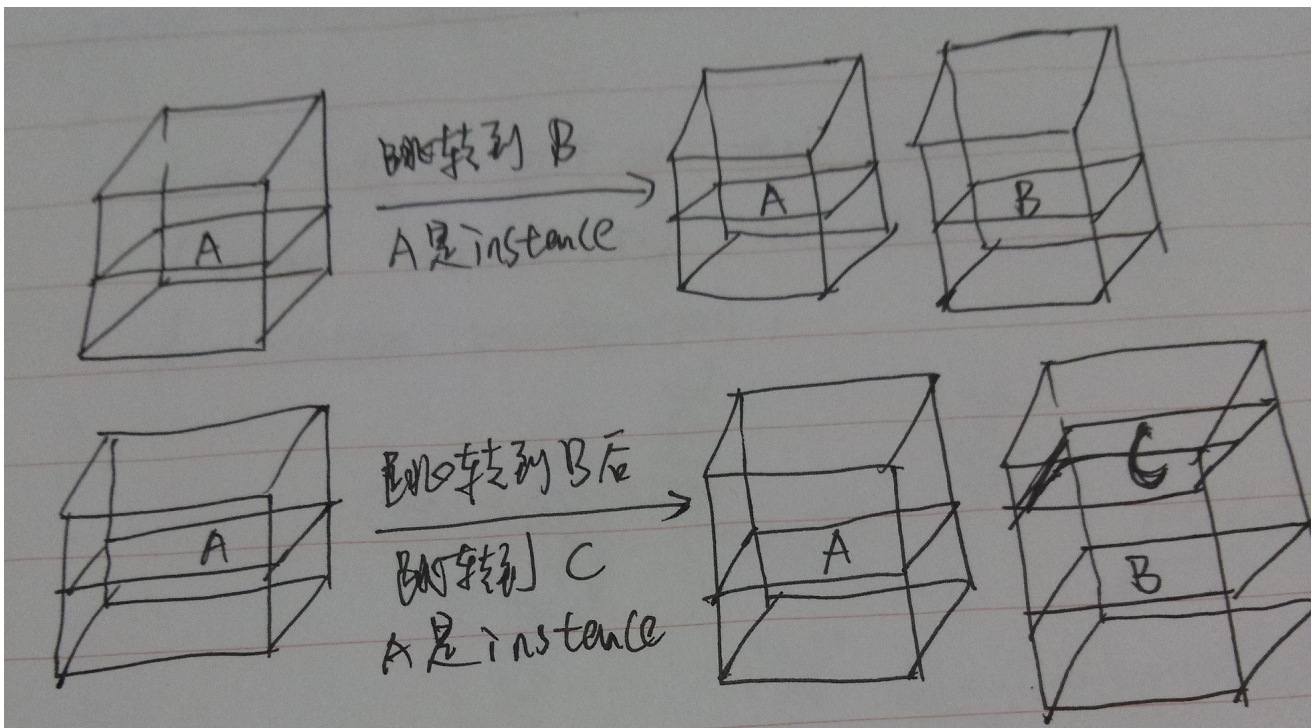 跳转到 B
A
A是instence
A
B
跳转到B后
A
跳转到 C
A是instence
A
C
B